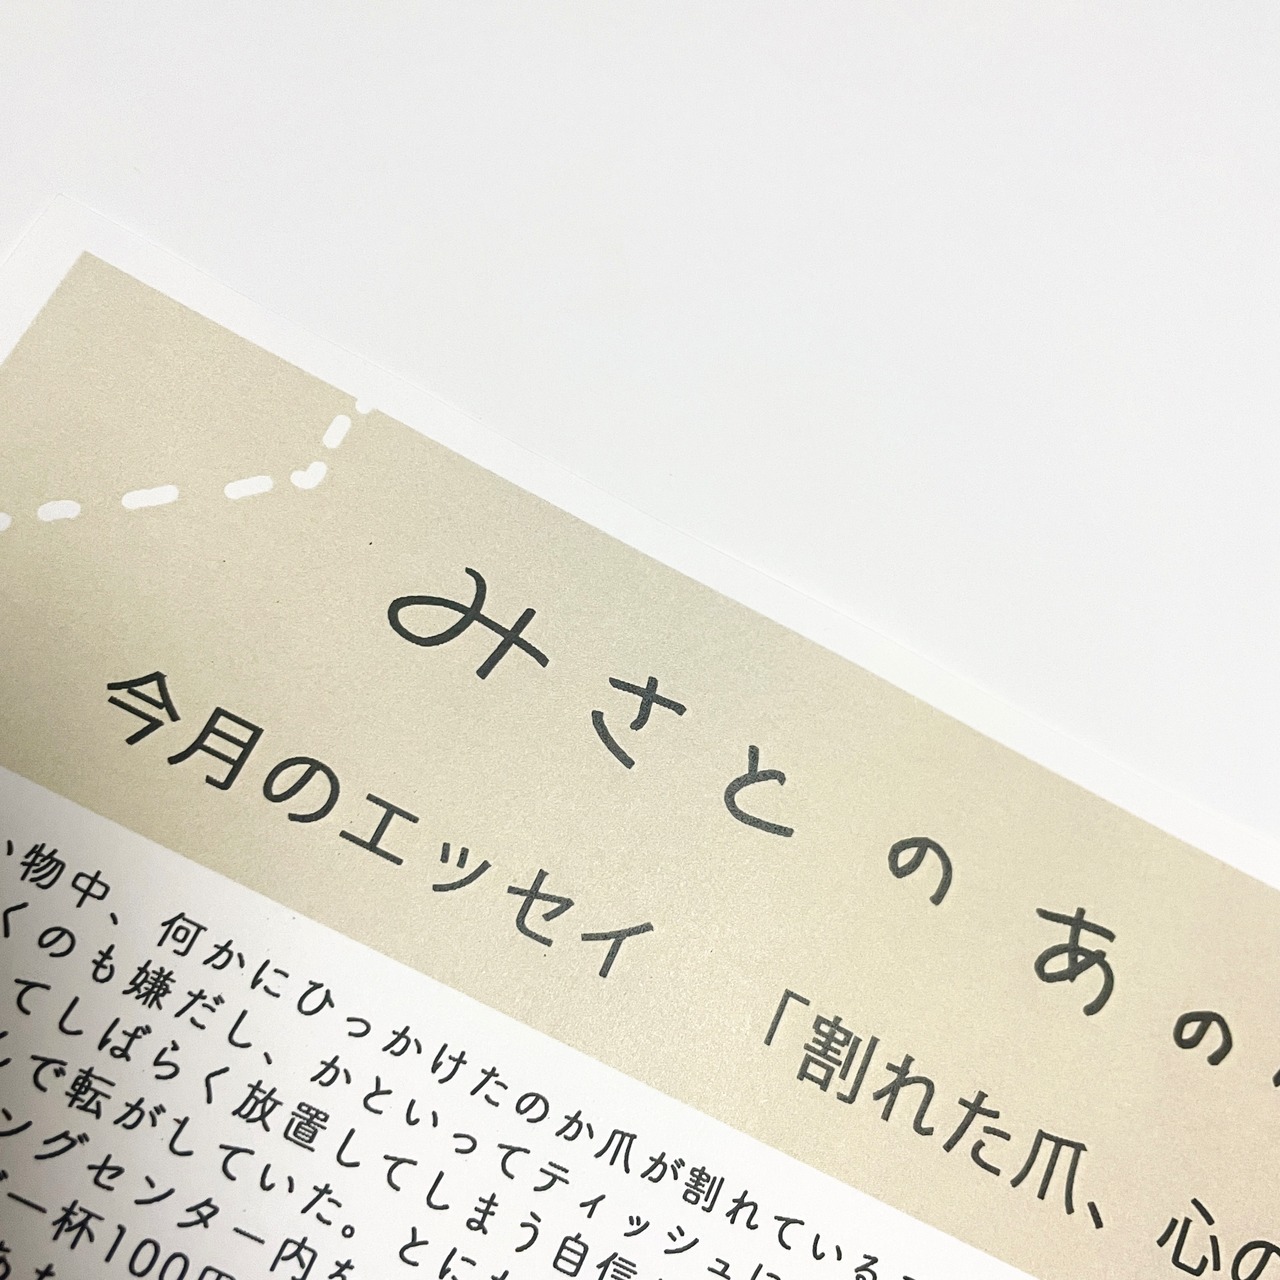 みさとのあの
今月のエッセイ 「割れた爪、心の
い物中、何かにひっかけたのか爪が割れている
くのも嫌だし、かといってティッシュに
てしばらく放置してしまう自信
で転がしていた。とにか
ングセンター内を
一杯100円